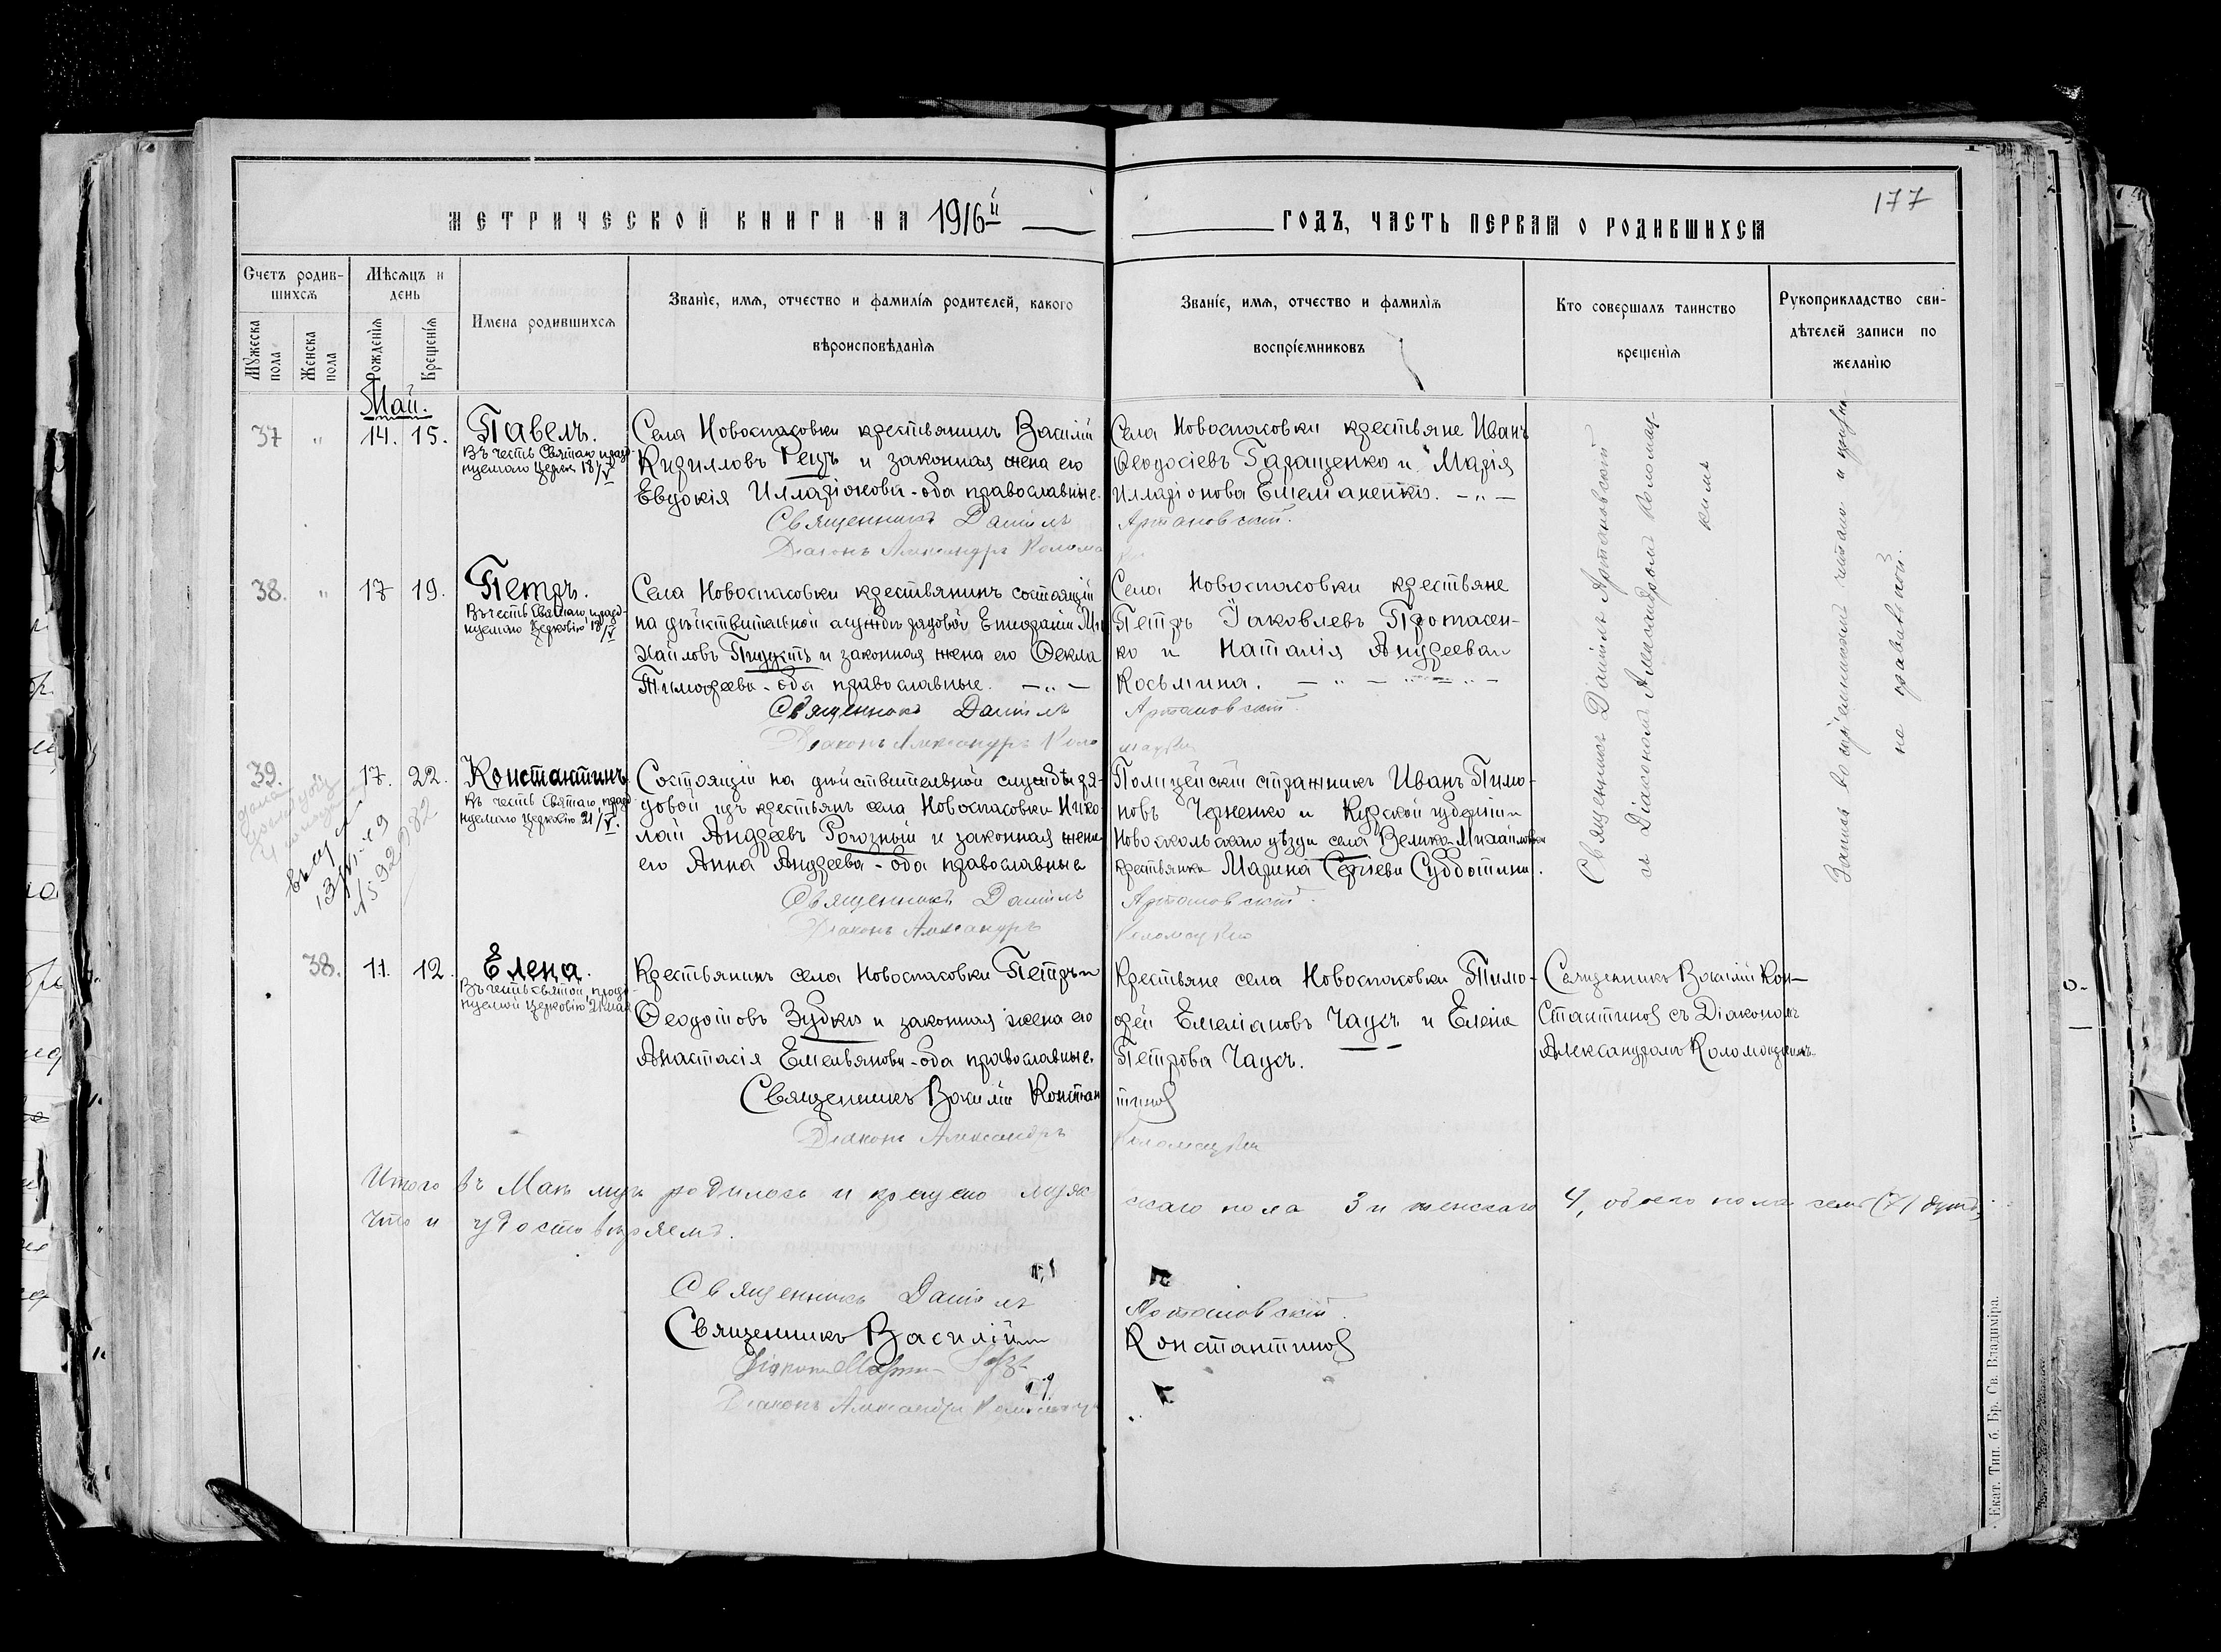 177
МЕТРИЧЕСКОЙ КНИГИ НА 1916й
ГОДЪ, ЧАСТЬ ПЕРВАЯ О РОДИВШИХСЯ
Счетъ родив-
шихся
Мужеска
пола
Женска
пола
Мѣсяцъ и
день
Рожденія
Крещенія
Имена родившихся
Званіе, имя, отчество и фамилія родителей, какого
вѣроисповѣданія
Званіе, имя, отчество и фамилія
воспріемниковъ
Кто совершалъ таинство
крещенія
Рукоприкладство сви-
дѣтелей записи по
желанію
Май.
37 " 14. 15. Павелъ.
Въ честь Святаго, празд-
нуемаго Церков 18/V
Села Новоспасовки крестьянинъ Василій
Кирилловъ Рецъ и законная жена его
Евдокія Илларіонова - оба православные.
Села Новоспасовки крестьяне Иванъ
Ѳеодосіевъ Гаращенко и Марія
Илларіонова Емельяненко. - " -
Священникъ Даніилъ Артановскій.
Діаконъ Александръ
38. " 17 19. Петръ.
Въ честь Святаго, празд-
нуемаго Церковію 18/V
Села Новоспасовки крестьянинъ состоящій
на дѣйствительной службѣ рядовой Епифаній Ми
хайловъ и законная жена его Ѳекла
Тимофеева - оба православные. - " -
Села Новоспасовки крестьяне
Петръ Іаковлевъ Протасен-
ко и Наталія Андреева
Косьмина.
Священникъ Даніилъ Артановскій.
Діаконъ Александръ
39. 17. 22. Константинъ
Въ честь Святаго, празд-
нуемаго Церковію 21/V.
Состоящій на дѣйствительной службѣ ря-
довой изъ крестьянъ села Новоспасовки Нико-
лай Андреевъ Рогозный и законная жена
его Анна Андреева - оба православные
Полицейскій стражникъ Иванъ Тимо-
новъ Черненко и Курской губерніи
Новооскольскаго уѣзда села Велико-Михайловки
крестьянка Марина Сергіева Субботина.
Священникъ Даніилъ Артановскій.
Діаконъ Александръ
Священникъ Даніилъ Артановскій
съ Діакономъ Александромъ
38. 11. 12. Елена.
Въ честь Святой, празд-
нуемой Церковію 21 мая
Крестьянинъ села Новоспасовки Петръ
Ѳеодотовъ Зубко и законная жена его
Анастасія Емельянова - оба православные.
Крестьяне села Новоспасовки Тимо-
фей Емеліановъ Чаусъ и Елена
Петрова Чаусъ.
Священникъ Василій Кон-
стантиновъ съ Діакономъ
Александромъ
Священникъ Василій Константинов
Діаконъ Александръ
Итого въ Маѣ м-цѣ родилось и крещено мужескаго пола 3 и женскаго 4, обоего пола семь (7) душъ,
что и удостовѣряемъ.
Священникъ Даніилъ Артановскій.
Священникъ Василій Константинов
Діаконъ
Діаконъ Александръ
Екат. Тип. б. Бр. Св. Владиміра.